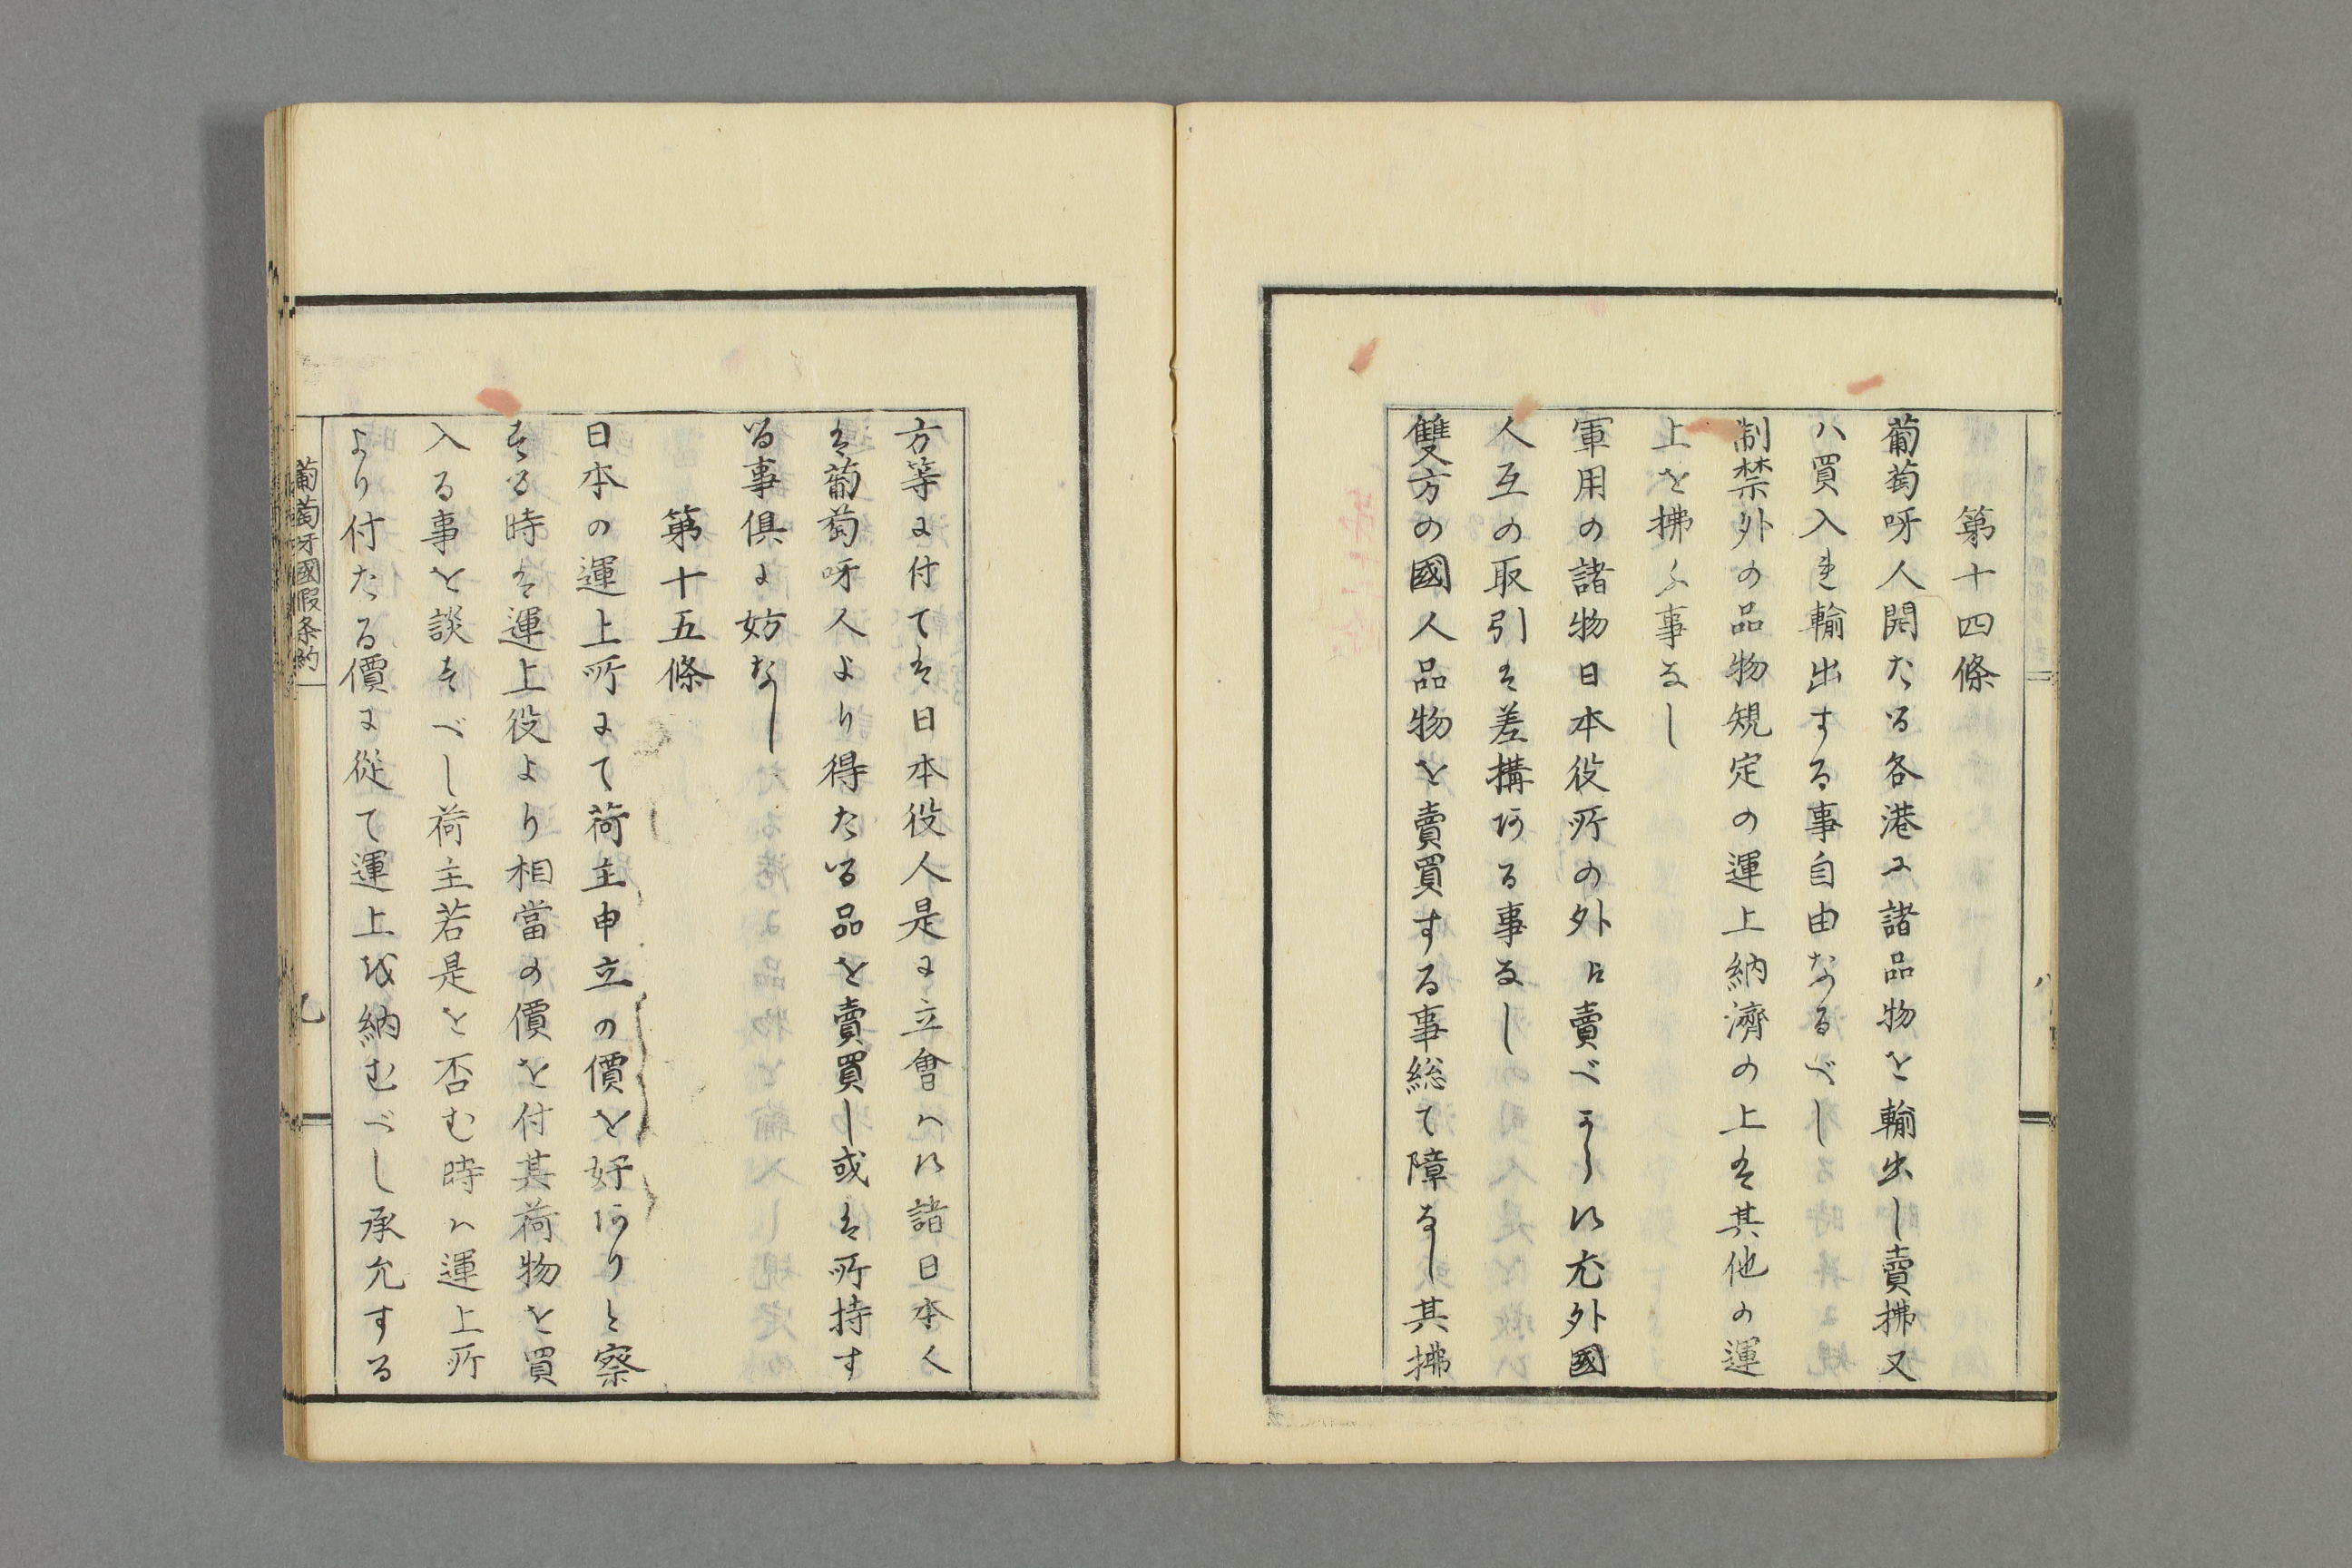 第十四條
葡萄呀人開たる各港に諸品物を輸出し賣拂又
ハ買入れ輸出する事自由なるべし
制禁外の品物規定の運上納濟の上は其他の運
上を拂ふ事なし
軍用の諸物日本役所の外に賣べからす尤外國
人互の取引は差構ある事なし
雙方の國人品物を賣買する事総て障なし其拂
方等に付ては日本役人是に立會ハす諸日本人
は葡萄呀人より得たる品を賣買し或は所持す
る事俱に妨なし
第十五條
日本の運上所にて荷主申立の價を奸ありと察
する時は運上役より相當の價を付其荷物を買
入る事を談すべし荷主若是を否む時ハ運上所
より付たる價に從て運上を納むべし承允する
葡萄呀國假条約